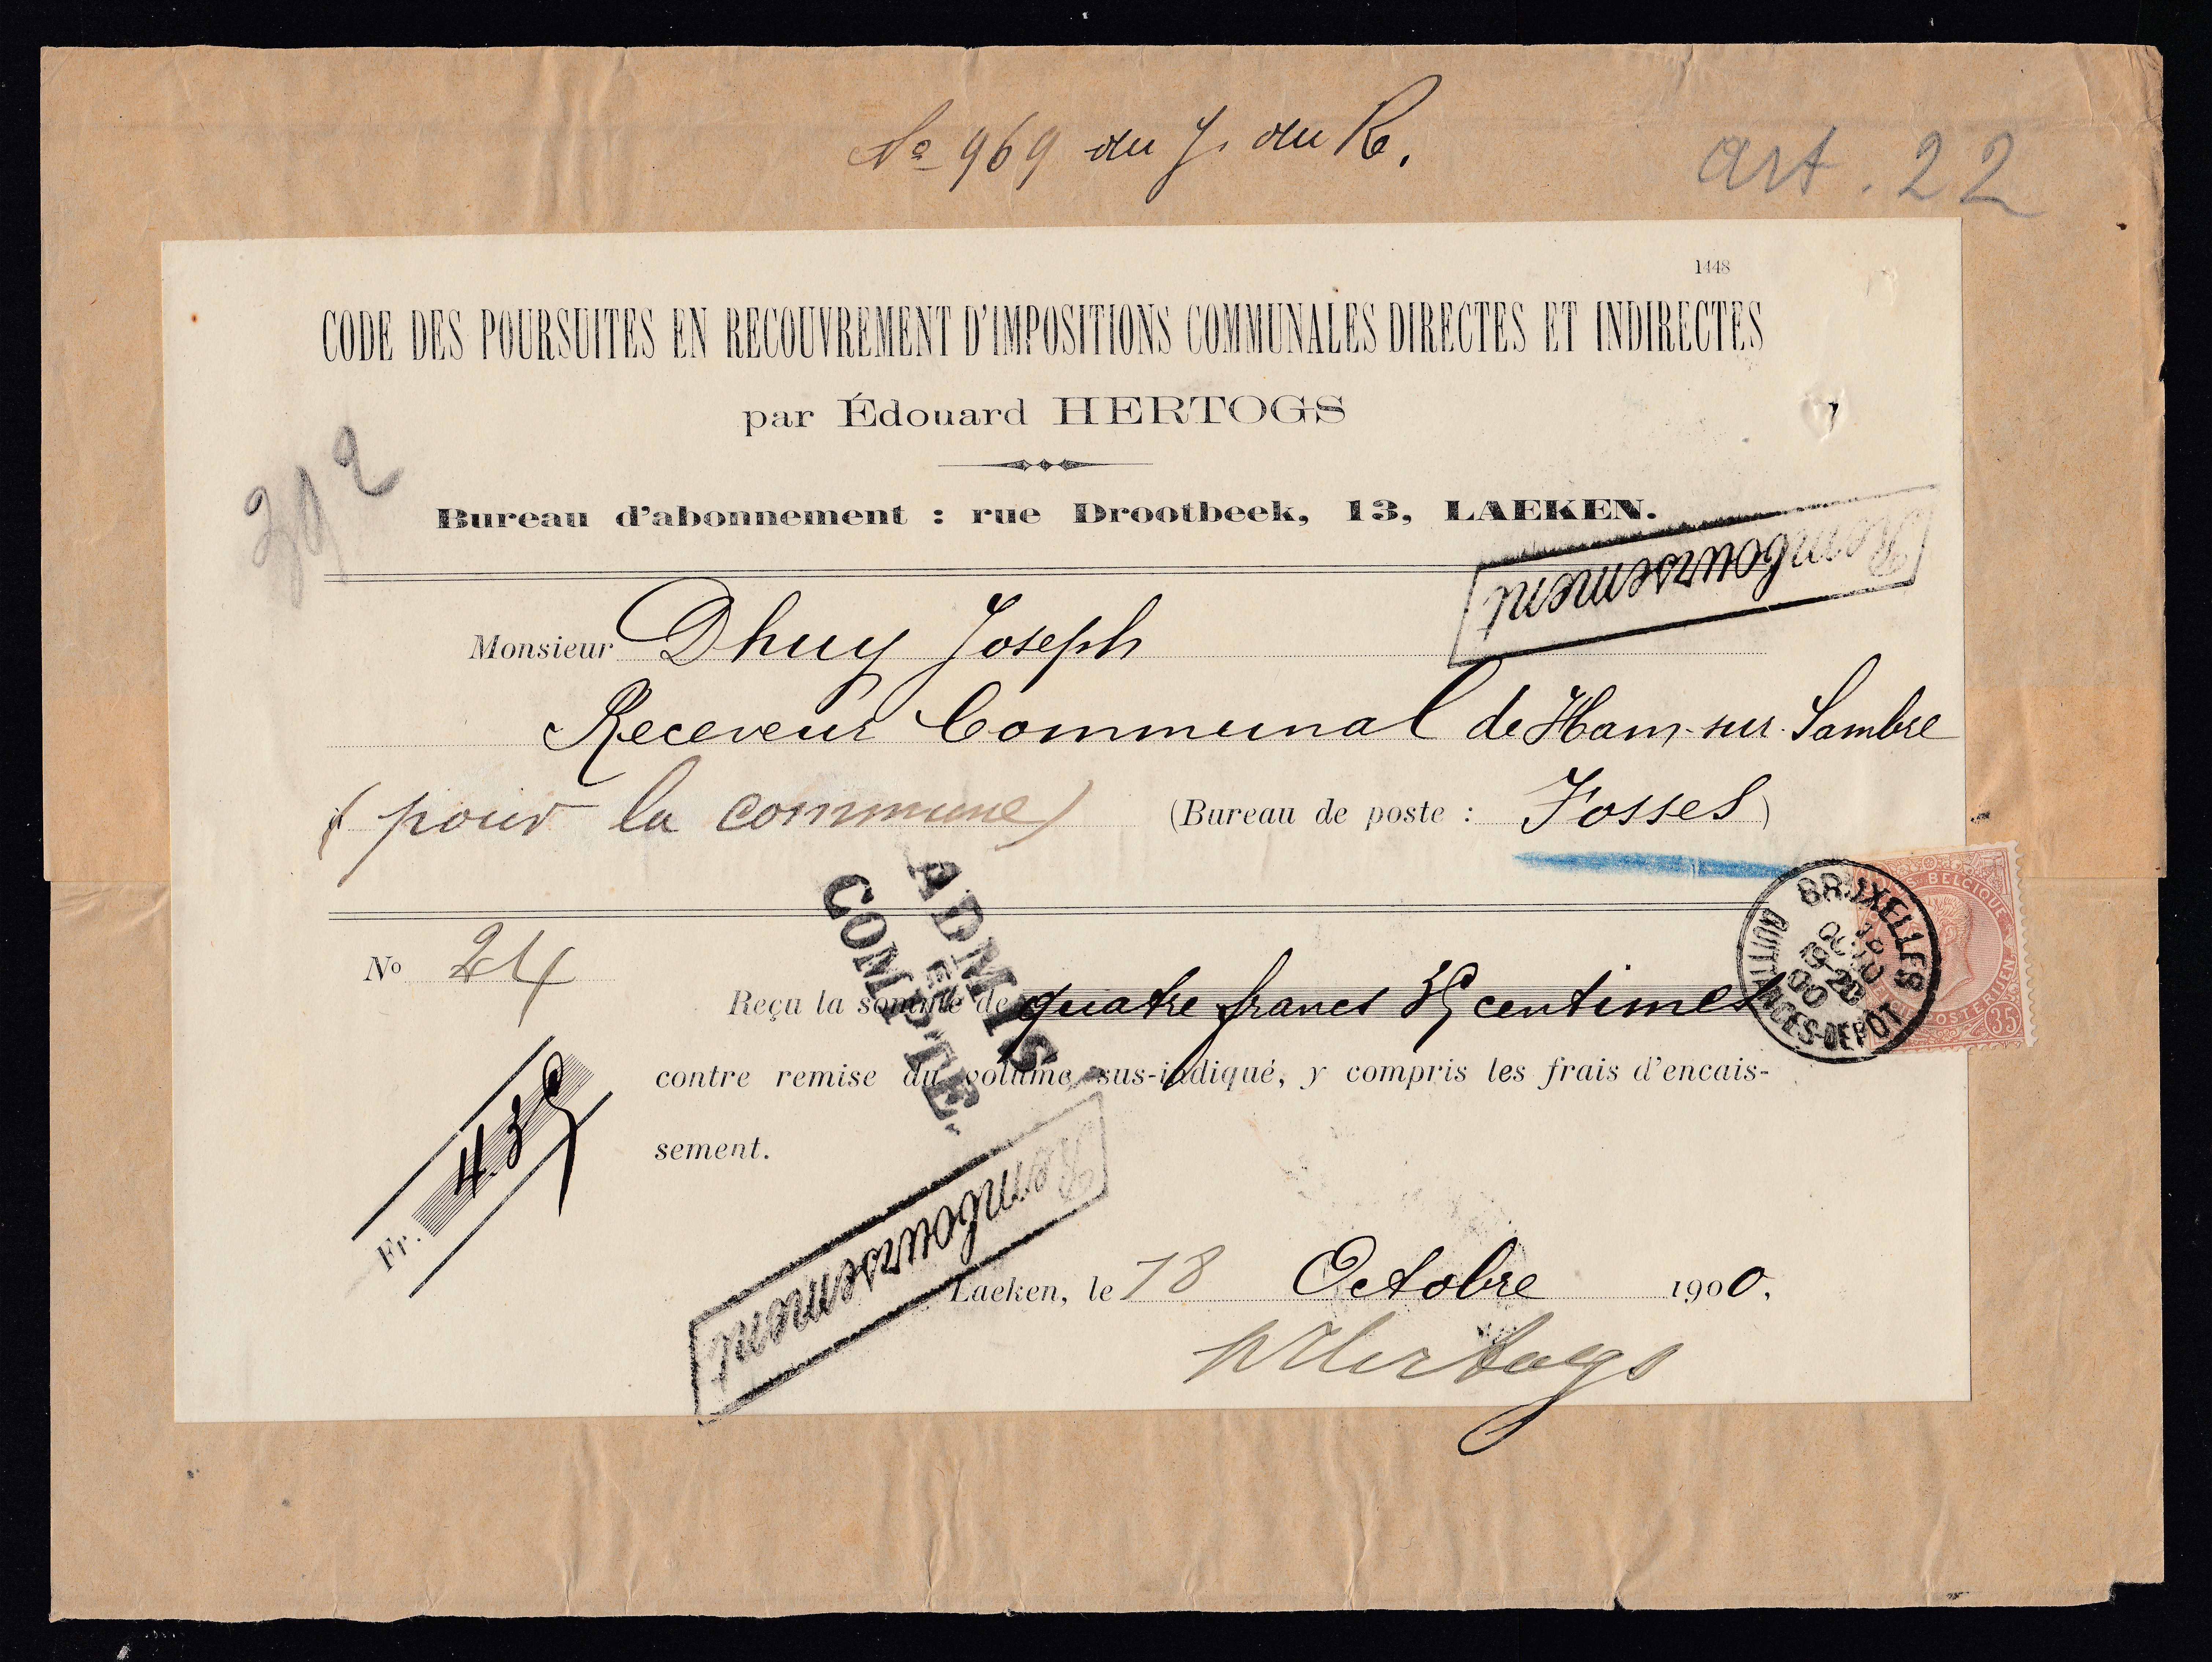 No 969 du J. du R.
art. 22
1448
CODE DES POURSUITES EN RECOUVREMENT D'IMPOSITIONS COMMUNALES DIRECTES ET INDIRECTES
par Édouard HERTOGS
Bureau d'abonnement : rue Drootbeek, 13, LAEKEN.
Remboursement
Monsieur Dhuy Joseph
Receveur Communal de Ham-sur-Sambre
(pour la commune) (Bureau de poste : Fosses)
ADMIS
EN
COMPTE.
BRUXELLES
QUITTANCES-DEPÔT
BELGIQUE
35
No 24
Reçu la somme de quatre francs 35 centimes
contre remise du volume sus-indiqué, y compris les frais d'encais-
sement.
Fr. 4.35
Remboursement
Laeken, le 18 Octobre 1900.
Hertogs